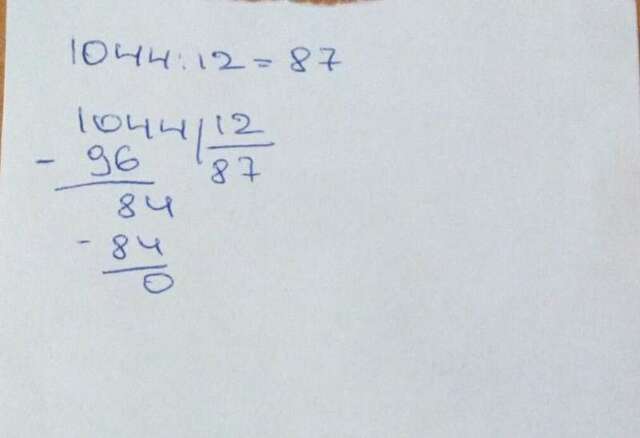 1044:12=87
1044|12
- 96
87
84
- 84
0